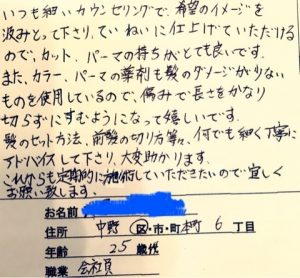 いつも細いカウンセリングで、希望のイメージを
汲みとって下さり、ていねいに仕上げていただける
ので、カット、パーマの持ちがとても良いです。
また、カラー、パーマの薬剤も髪のダメージが少ない
ものを使用しているので、傷みで長さをかなり
切らずにすむようになって嬉しいです。
髪のセット方法、前髪の切り方等々、何でも細く丁寧に
アドバイスして下さり、大変助かります。
これからも定期的に施術していただきたいので宜しく
お願い致します。
お名前
住所 中野 区・市・町 本町 6 丁目
年齢 25 歳代
職業 会社員